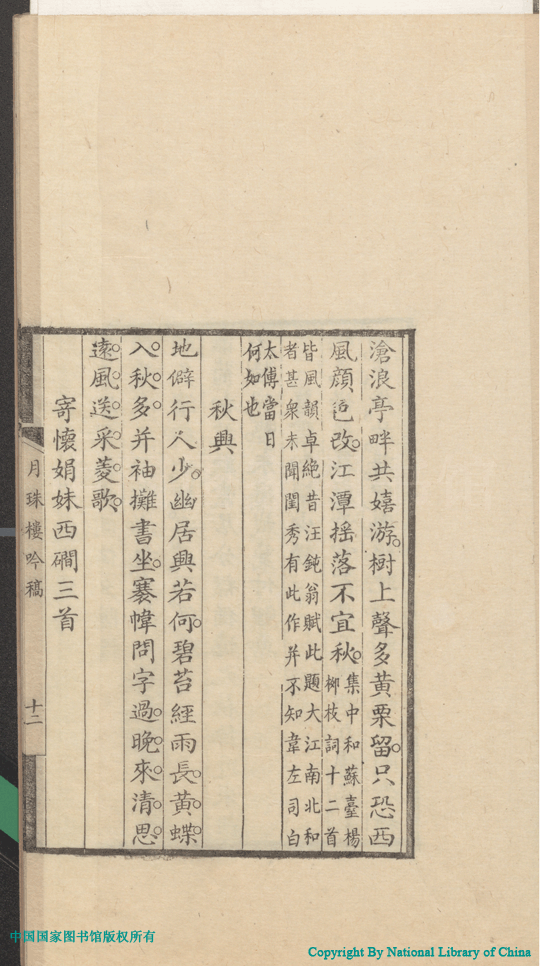 滄浪亭畔共嬉游樹上聲多黃栗留只恐西
風顏色改江潭揺落不宜秋集中和蘇臺楊
柳枝詞十二首
皆風韻卓絶昔汪鈍翁賦此題大江南北和
者甚衆未聞閨秀有此作并不知韋左司白
太傅當日
何如也
秋興
地僻行人少幽居興若何碧苔經雨長黃蝶
入秋多并袖攤書坐褰幃問字過晚來清思
遠風送采菱歌
寄懷娟妹西磵三首
月珠樓吟稿
十二
中国国家图书馆版权所有
Copyright By National Library of China